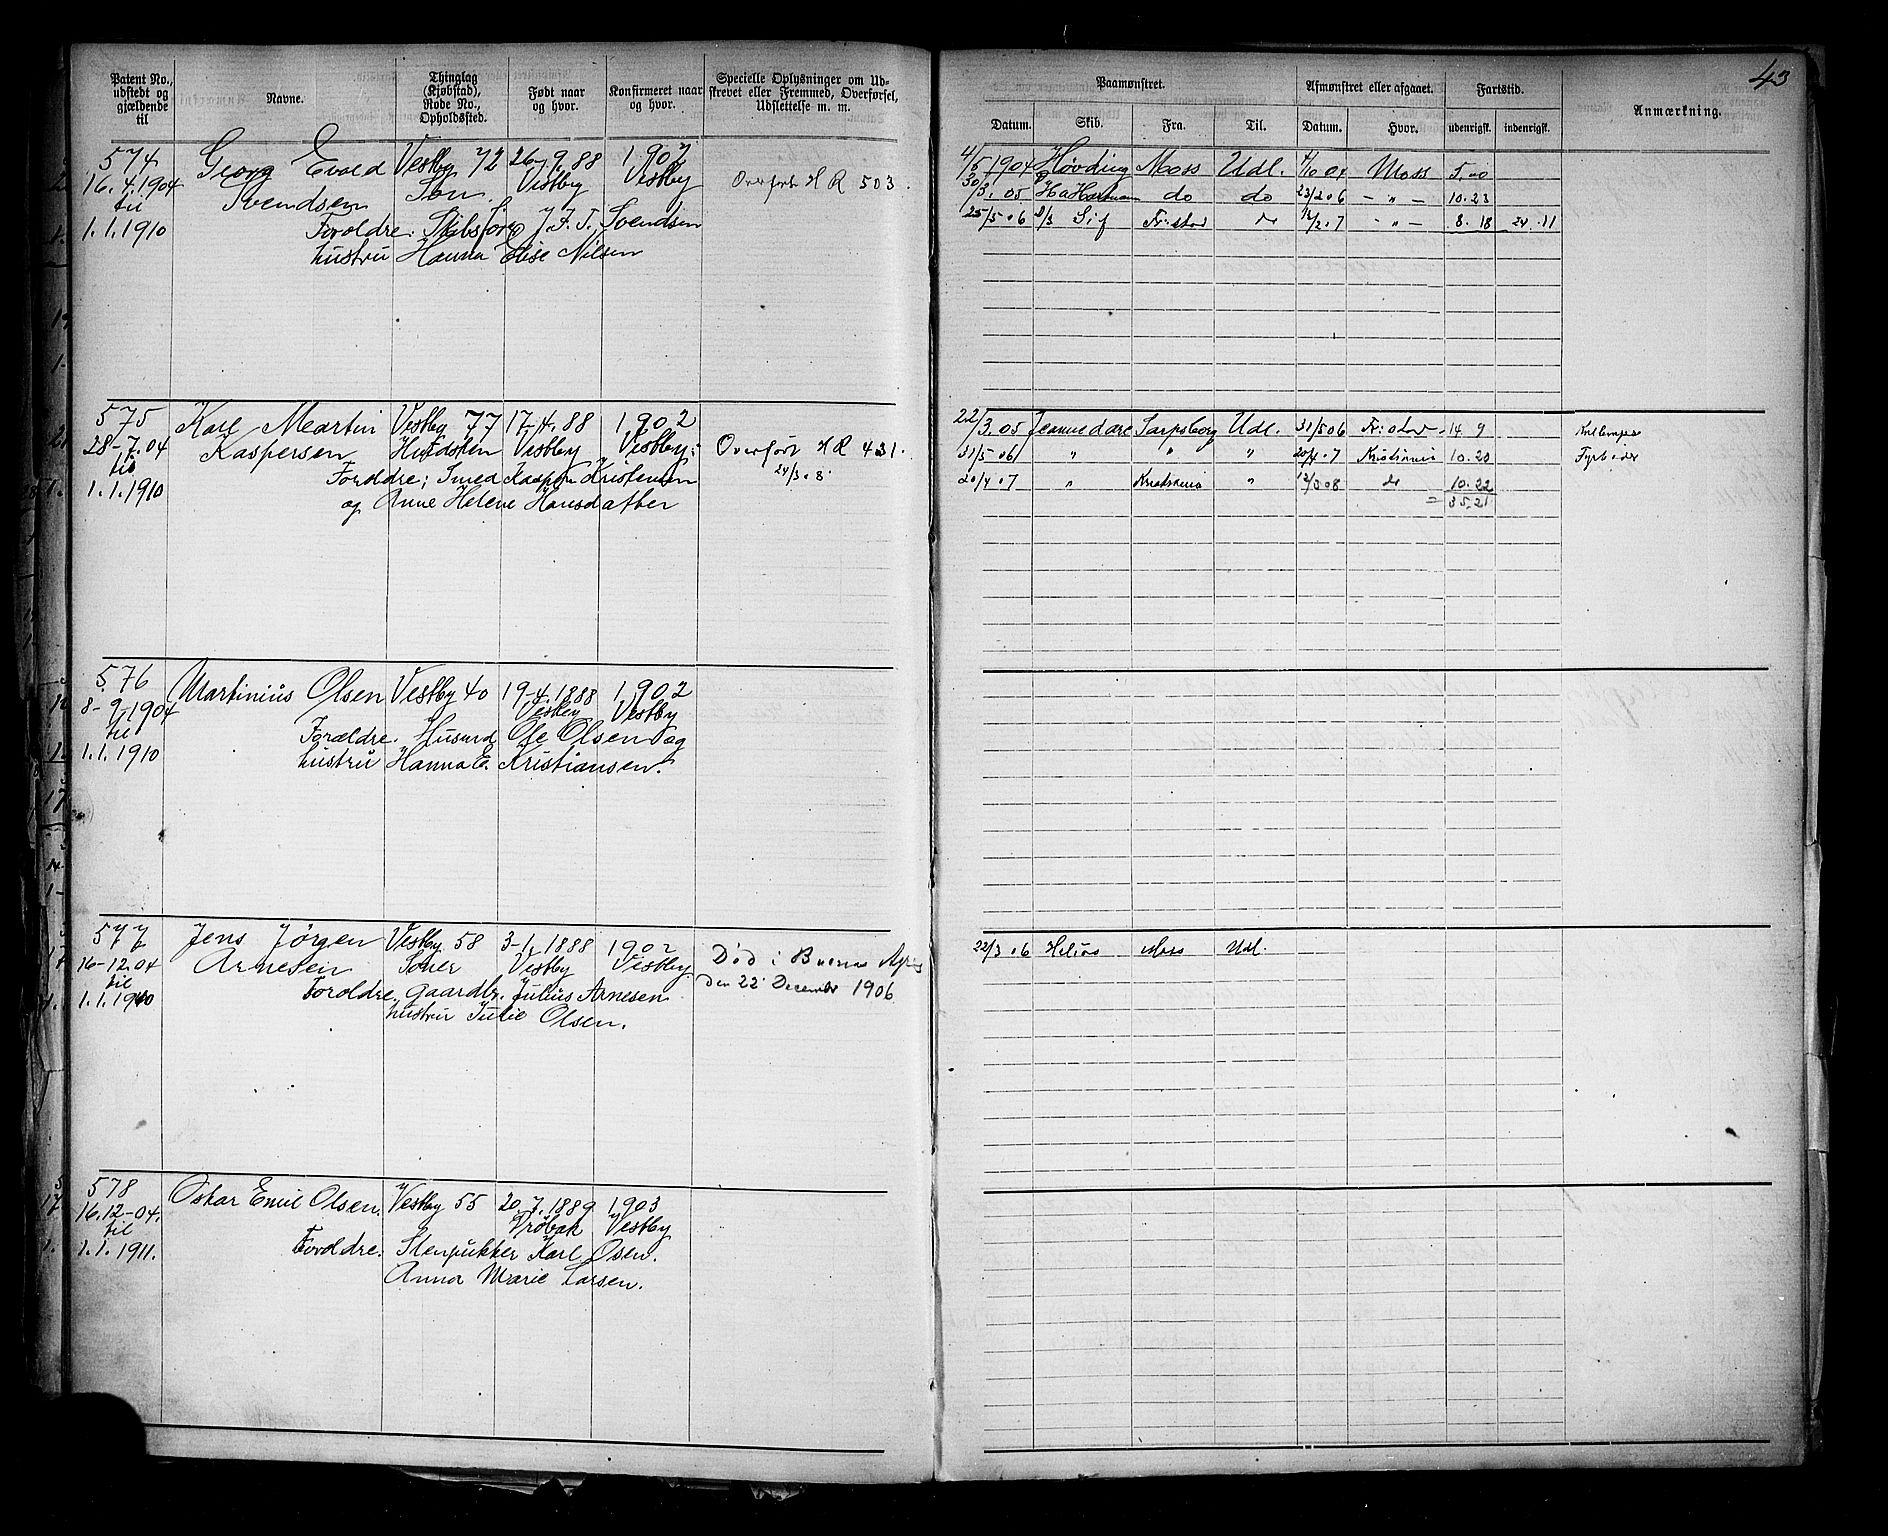 Patent No., udstedt og gjældende til
Navne.
Thinglag (Kjøbstad), Rode No., Opholdssted.
Født naar og hvor.
Konfirmeret naar og hvor.
Specielle Oplysninger om Udskrevet eller Fremmed, Overførsel, Udslettelse m. m.
574 Georg Evald Vestby 72 26/9.88 1902
16.4.1904 Svendsen Son Vestby Vestby Overført H R 503.
til
1.1.1910 Foroldre: Skibsfører J. F. T. Svendsen
hustru Hanna Elise Nilsen
575 Karl Martin Vestby 77 17/4.88 1902
28-7.04 Kaspersen Hvidsten Vestby Vestby: Overført H R 431.
til Foroldre: Smed Kasper Kristensen 24/3.8.
1.1.1910 og Anne Helene Hansdatter
576 Martinius Olsen Vestby 40 19-4.1888 1902
8-9-1904 Vestby Vestby
til Forældre. Husmd Ole Olsen og
1.1.1910 hustru Hanna E. Kristiansen.
577 Jens Jörgen Vestby 58 3-1.1888 1902
16-12.04 Arnesen Soner Vestby Vestby. Død i Buenos Ayres
til Foroldre. gaardbr. Julius Arnesen den 22 December 1906
1.1.1910 hustru Julie Olsen.
578 Oskar Emil Olsen. Vestby 55 20.7.1889 1903
16.12-04. Drøbak Vestby
til
1.1.1911. Foroldre: Stenpukker Karl Osen.
Anna Marie Larsen.
43
Paamønstret.
Afmønstret eller afgaaet.
Fartstid.
Anmærkning.
Datum. Skib. Fra. Til. Datum. Hvor. udenrigsk. indenrigsk.
4/5 1904 Høvding Moss Udl. 4/10 04 Moss 5.00
30/3.05 Hartmann do do 23/2 06 - " - 10.23
25/5.06 Sif Fr:stad 12/2.7 - " - 8.18 24.11
22/3.05 Jeannedare Sarpsborg Udl. 31/5 06 Fr:stad 14 9 Kullemper
31/5.06 " " " 20/4.7 Kristiania 10.20 Fyrbøder
20/4.07 " Kristiania " 12/3 08 do 10.22
= 35.21
22/3.06 Helios Moss Udl.